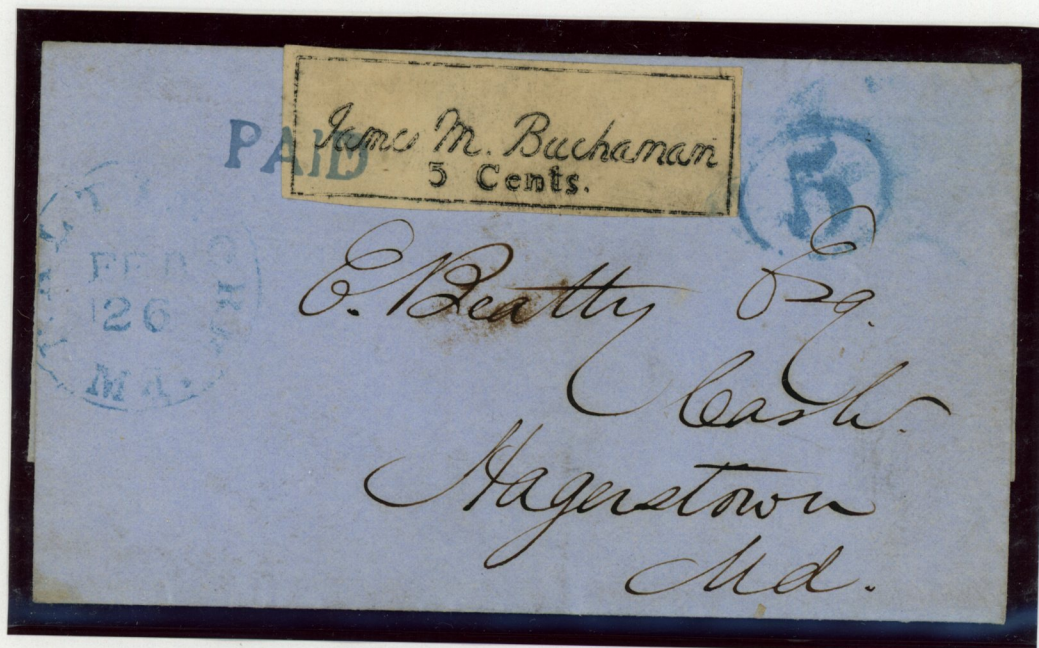 PAID
James M. Buchanan
5 Cents.
5
FEB
26
MD.
E. Beatty Esq.
Cash.
Hagerstown
Md.